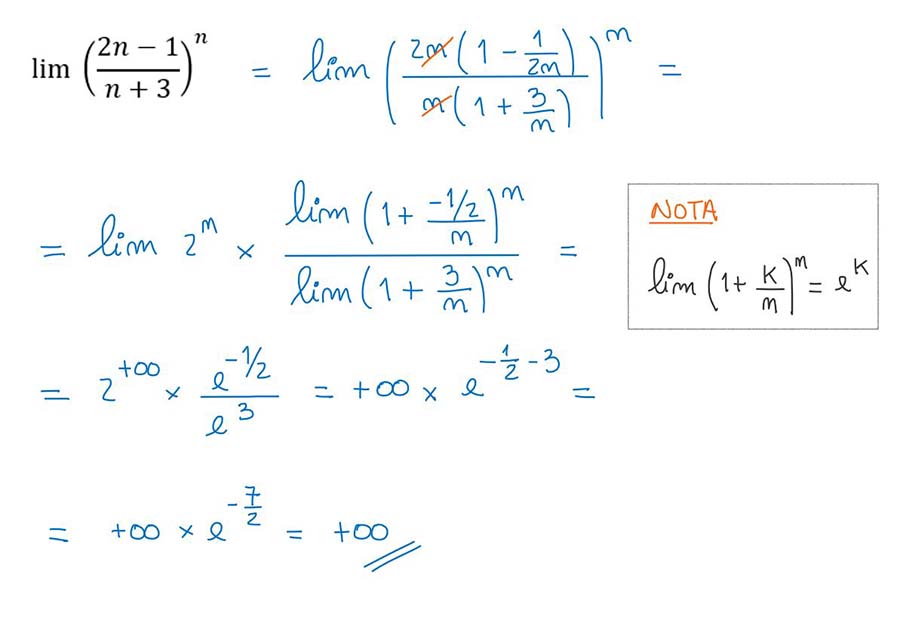 lim ((2n − 1)/(n + 3))^n = lim ((2n(1 − 1/(2n)))/(n(1 + 3/n)))^n =
= lim 2^n × (lim (1 + (−1/2)/n)^n)/(lim (1 + 3/n)^n) =
NOTA
lim (1 + K/n)^n = e^K
= 2^(+∞) × (e^(−1/2))/(e^3) = +∞ × e^(−1/2 − 3) =
= +∞ × e^(−7/2) = +∞